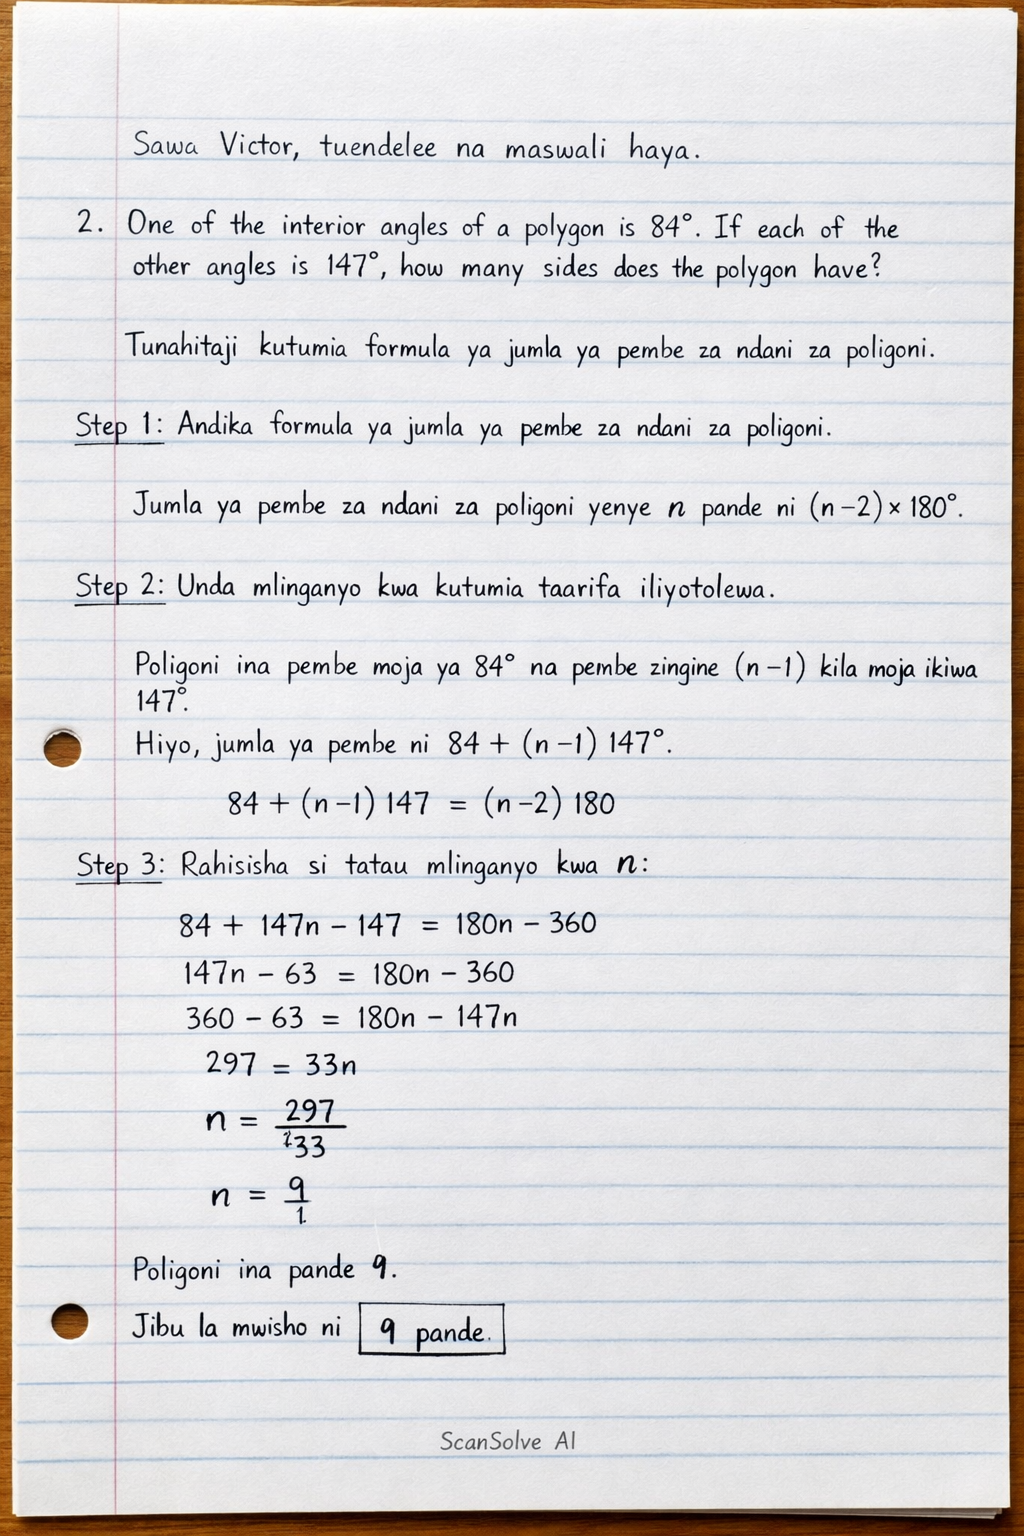 Sawa Victor, tuendelee na maswali haya.
2. One of the interior angles of a polygon is 84°. If each of the
other angles is 147°, how many sides does the polygon have?
Tunahitaji kutumia formula ya jumla ya pembe za ndani za poligoni.
Step 1: Andika formula ya jumla ya pembe za ndani za poligoni.
Jumla ya pembe za ndani za poligoni yenye n pande ni (n-2) × 180°.
Step 2: Unda mlinganyo kwa kutumia taarifa iliyotolewa.
Poligoni ina pembe moja ya 84° na pembe zingine (n-1) kila moja ikiwa
147°.
Hiyo, jumla ya pembe ni 84 + (n-1) 147°.
84 + (n-1) 147 = (n-2) 180
Step 3: Rahisisha si tatau mlinganyo kwa n:
84 + 147n - 147 = 180n - 360
147n - 63 = 180n - 360
360 - 63 = 180n - 147n
297 = 33n
n = 297/33
n = 9/1
Poligoni ina pande 9.
Jibu la mwisho ni 9 pande.
ScanSolve AI